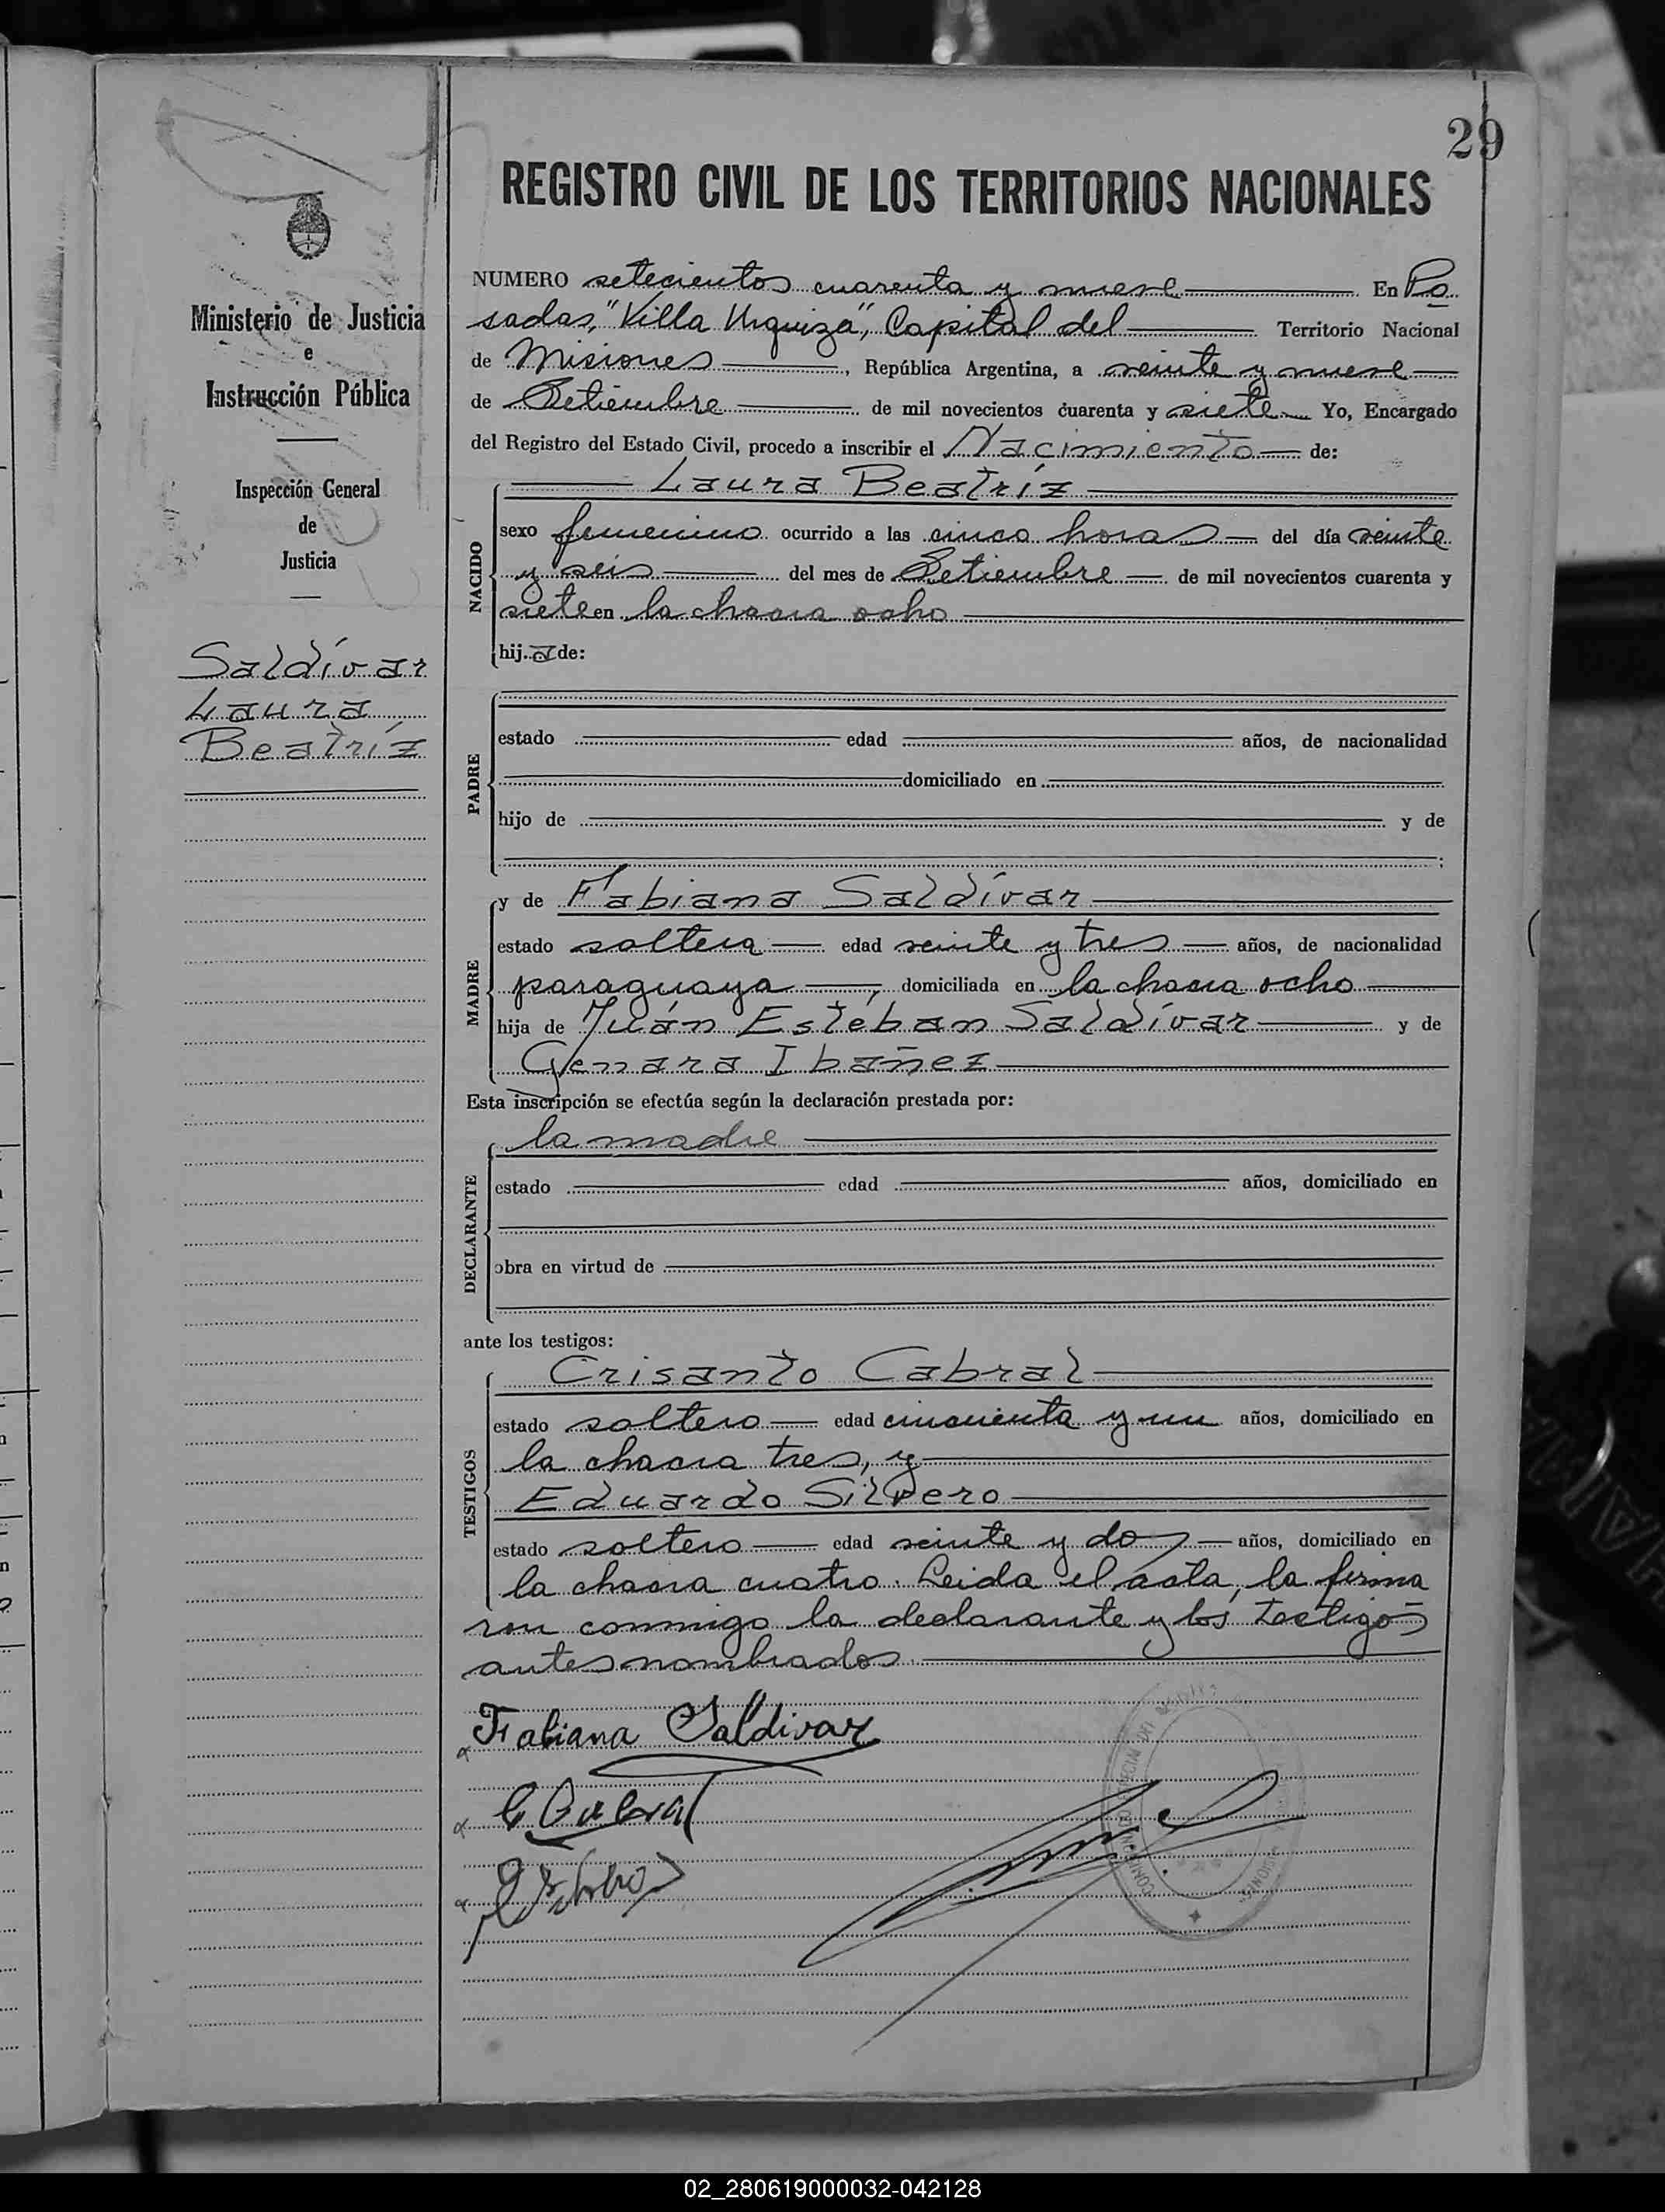 29
REGISTRO CIVIL DE LOS TERRITORIOS NACIONALES
Ministerio de Justicia
e
Instrucción Pública
Inspección General
de
Justicia
Saldívar
Laura
Beatríz
NUMERO setecientos cuarenta y nueve En Po
sadas, "Villa Urquiza", Capital del Territorio Nacional
de Misiones, República Argentina, a veinte y nueve
de Setiembre de mil novecientos cuarenta y siete Yo, Encargado
del Registro del Estado Civil, procedo a inscribir el Nacimiento de:
Laura Beatríz
NACIDO
sexo femenino ocurrido a las cinco horas del día veinte
y seis del mes de Setiembre de mil novecientos cuarenta y
siete en la chacra ocho
hija de:
PADRE
estado edad años, de nacionalidad
domiciliado en
hijo de y de
;
MADRE
y de Fabiana Saldívar
estado soltera edad veinte y tres años, de nacionalidad
paraguaya, domiciliada en la chacra ocho
hija de Juán Estéban Saldívar y de
Genara Ibañez
Esta inscripción se efectúa según la declaración prestada por:
la madre
DECLARANTE
estado edad años, domiciliado en
obra en virtud de
ante los testigos:
Crisanto Cabral
TESTIGOS
estado soltero edad cincuenta y un años, domiciliado en
la chacra tres, y
Eduardo Silvero
estado soltero edad veinte y dos años, domiciliado en
la chacra cuatro. Leida el acta, la firma
ron conmigo la declarante y los testigos
antes nombrados.
Fabiana Saldivar
C Cabral
02_280619000032-042128